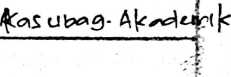 Kasubag. Akademik